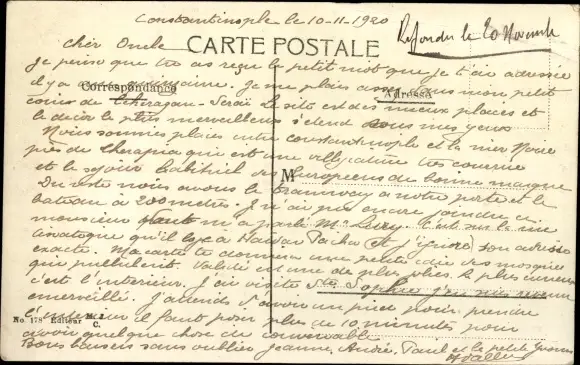 Constantinople le 10-11-1920
Répondu le 20 Novembre
Cher Oncle
CARTE POSTALE
Je pense que tu as reçu le petit mot que je t'ai adressé
il y a quinzaine. Je me plais assez dans mon petit
Correspondance
Adresse
coin de Tcheragan-Seraï le site est des mieux placés et
le décor le plus merveilleux s'étend sous mes yeux
Nous sommes placés entre Constantinople et la mer Noire
près de Therapia qui est une villégiature très courue
et le séjour habituel des Européens de bonne marque
M
Du reste nous avons le tramway à notre porte et le
bateau à 200 mètres. Je n'ai pas encore joindre ce
monsieur dont m'a parlé Mr c'est sur la rive
asiatique qu'il loge à Haidar Pacha (et j'ignore) son adresse
exacte. Ma carte te donnera une petite idée des mosquées
qui pullulent. Validé est une des plus jolies. Le plus curieux
c'est l'intérieur. J'ai visité Ste Sophie j'en suis revenu
émerveillé. J'attends d'avoir un pied pour prendre
l'intérieur il faut poser plus de 10 minutes pour
No. 178 Editeur M. J. C.
avoir quelque chose de convenable
Bons baisers sans oublier Jeanne, André, Paul et la petite Yvonne